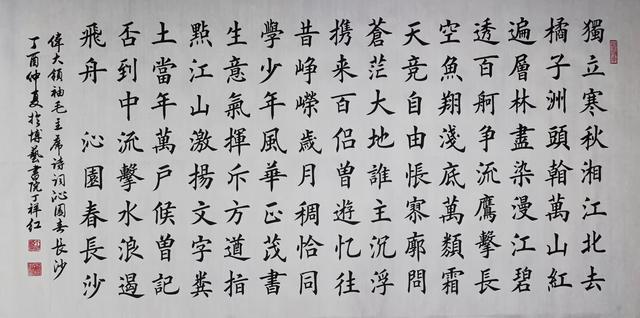 獨立寒秋湘江北去
橘子洲頭翰萬山紅
遍層林盡染漫江碧
透百舸争流鷹擊長
空魚翔淺底萬類霜
天竞自由悵寥廓問
蒼茫大地誰主沉浮
携来百侣曾遊忆往
昔崢嶸歲月稠恰同
學少年風華正茂書
生意氣揮斥方遒指
點江山激揚文字糞
土當年萬户侯曾記
否到中流擊水浪遏
飛舟 沁園春長沙
偉大領袖毛主席诗词沁園春長沙
丁酉仲夏於博藝書院丁祥红